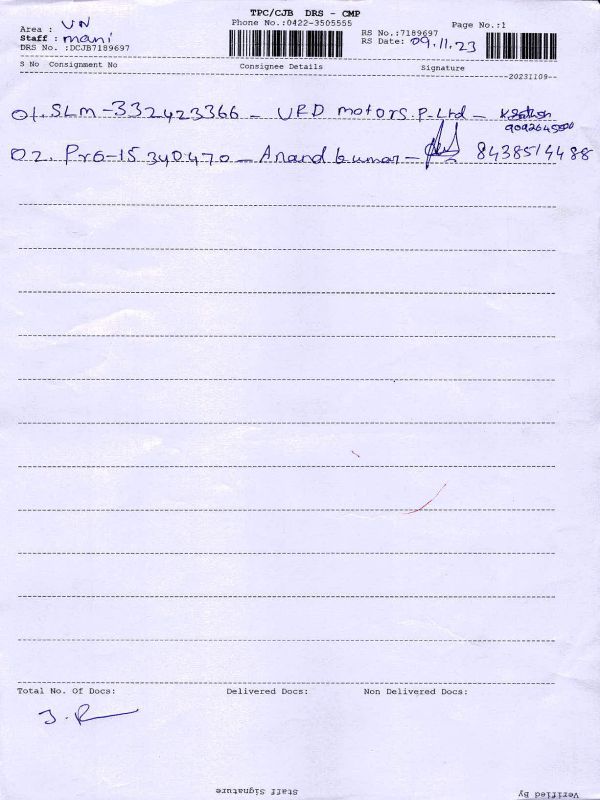 TPC/CJB DRS - CMP
Phone No.:0422-3505555
Page No.:1
Area : VN
Staff : mani
DRS No. :DCJB7189697
RS No.:7189697
RS Date: 09.11.23
S No Consignment No Consignee Details Signature
--20231109--
01. SLM-332423366 - URD motors P. Ltd -
02. Pro-15340470 - Anand kumar - 8438514488
Total No. Of Docs: Delivered Docs: Non Delivered Docs:
Staff Signature Verified By